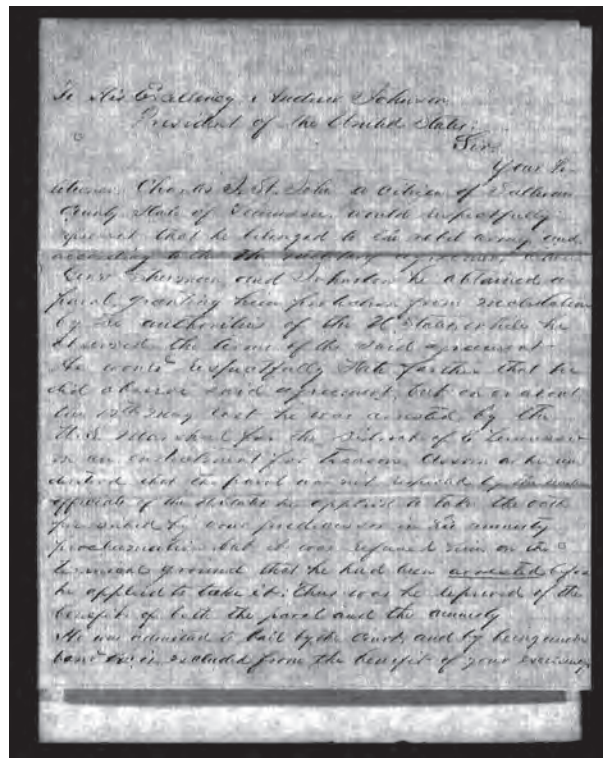 To His Excellency Andrew Johnson
President of the United States.
Sir
Your Pe-
titioner Charles J. St. John a citizen of Sullivan
County State of Tennessee would respectfully
represent that he belonged to the rebel army and
according to the military agreement
Genls Sherman and Johnston he obtained a
parol granting him protection from molestation
by the authorities of the U States while he
observed the terms of the said agreement
He would respectfully State further that he
did observe said agreement, but on or about
the May last he was arrested by the
U.S. Marshal for the District of E Tennessee
on an indictment for treason. As soon as he un
derstood that the parol was not respected by the
officials of the U States he applied to take the oath
prescribed by your predecessor in his amnesty
proclamation but it was refused him on the
ground that he had been arrested before
he applied to take it: thus was he deprived of the
benefit of both the parol and the amnesty
He was admitted to bail by the Court and by being under
bond he is excluded from the benefit of your